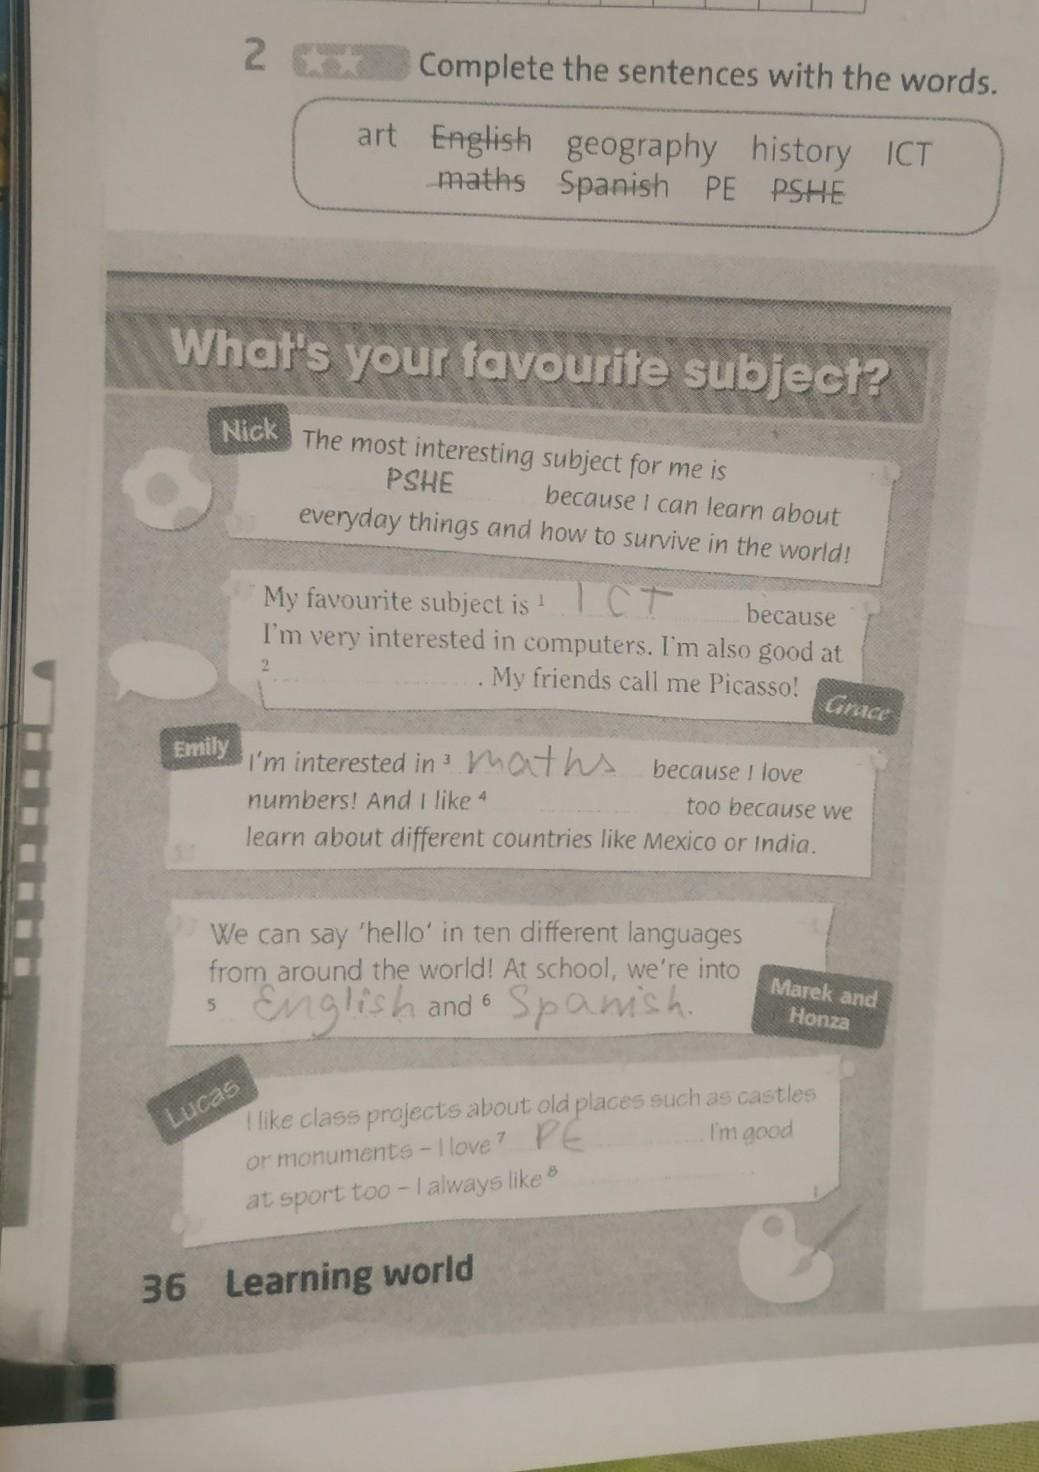 2 Complete the sentences with the words.
art English geography history ICT
maths Spanish PE PSHE
What's your favourite subject?
Nick
The most interesting subject for me is
PSHE because I can learn about
everyday things and how to survive in the world!
My favourite subject is 1 ICT because
I'm very interested in computers. I'm also good at
2 . My friends call me Picasso!
Grace
Emily
I'm interested in 3 maths because I love
numbers! And I like 4 too because we
learn about different countries like Mexico or India.
We can say 'hello' in ten different languages
from around the world! At school, we're into
5 English and 6 Spanish.
Marek and
Honza
Lucas
I like class projects about old places such as castles
or monuments – I love 7 PE . I'm good
at sport too – I always like 8 .
36 Learning world